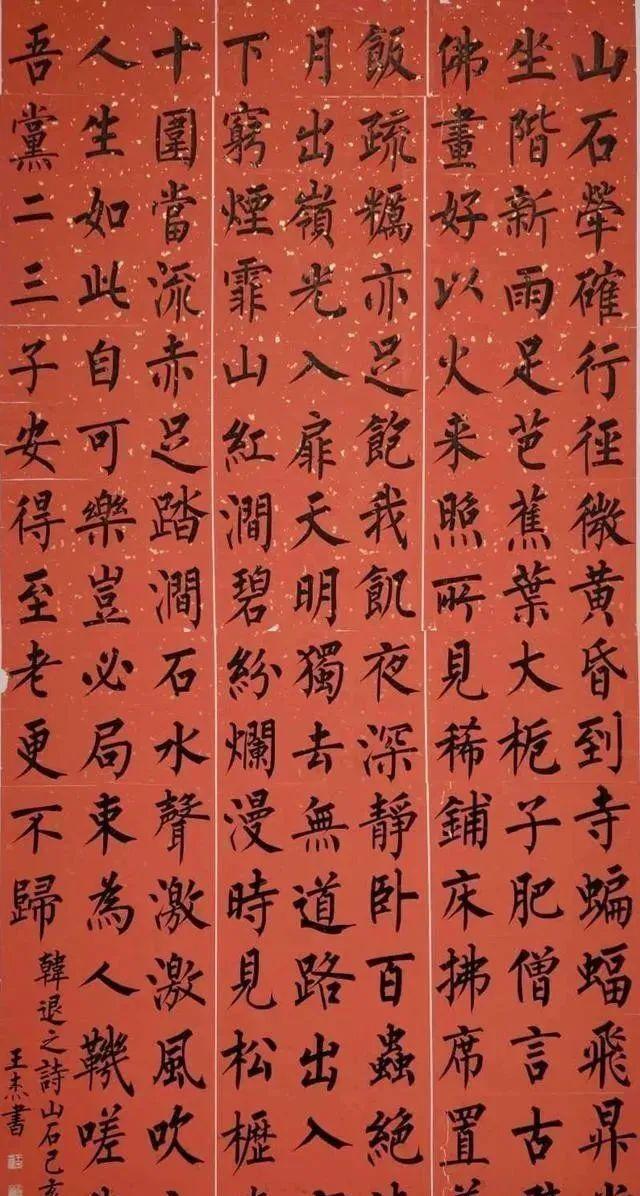 山石犖確行徑微黃昏到寺蝙蝠飛昇
坐階新雨足芭蕉葉大栀子肥僧言古
佛畫好以火来照所見稀鋪床拂席置
飯疏糲亦足飽我飢夜深靜卧百蟲絕
月出嶺光入扉天明獨去無道路出入
下窮煙霏山紅澗碧紛爛漫時見松櫪
十圍當流赤足踏澗石水聲激激風吹
人生如此自可樂豈必局束為人鞿嗟
吾黨二三子安得至老更不歸
韓退之詩山石己亥
王杰書